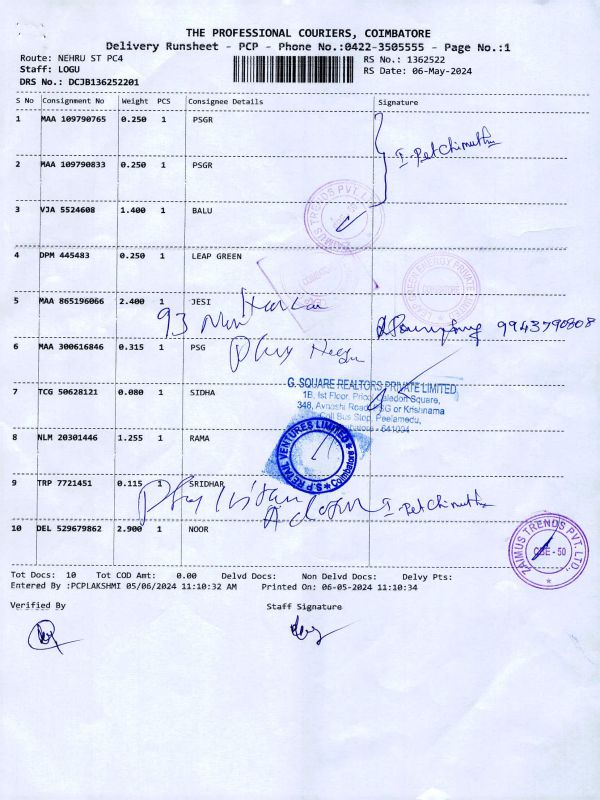 THE PROFESSIONAL COURIERS, COIMBATORE
Delivery Runsheet - PCP - Phone No.:0422-3505555 - Page No.:1
Route: NEHRU ST PC4
RS No.: 1362522
Staff: LOGU
RS Date: 06-May-2024
DRS No.: DCJB136252201
S No Consignment No Weight PCS Consignee Details Signature
1 MAA 109790765 0.250 1 PSGR
I. Petchimuthu
2 MAA 109790833 0.250 1 PSGR
3 VJA 5524608 1.400 1 BALU
ZAIMUS TRENDS PVT. LTD.
4 DPM 445483 0.250 1 LEAP GREEN
LEAP GREEN ENERGY PRIVATE
COIMBATORE
5 MAA 865196066 2.400 1 JESI
93
9943790808
6 MAA 300616846 0.315 1 PSG
G. SQUARE REALTORS PRIVATE LIMITED
7 TCG 50628121 0.080 1 SIDHA
1B, Ist Floor, Square,
348, Avinashi Road, PSG or Krishnama
Coll Bus Stop, Peelamedu,
641004
8 NLM 20301446 1.255 1 RAMA
S.P RETAIL VENTURES LIMITED
Coimbatore
9 TRP 7721451 0.115 1 SRIDHAR
I. Petchimuthu
10 DEL 529679862 2.900 1 NOOR
ZAIMUS TRENDS PVT. LTD.
CBE - 50
Tot Docs: 10 Tot COD Amt: 0.00 Delvd Docs: Non Delvd Docs: Delvy Pts:
Entered By :PCPLAKSHMI 05/06/2024 11:10:32 AM Printed On: 06-05-2024 11:10:34
Verified By
Staff Signature